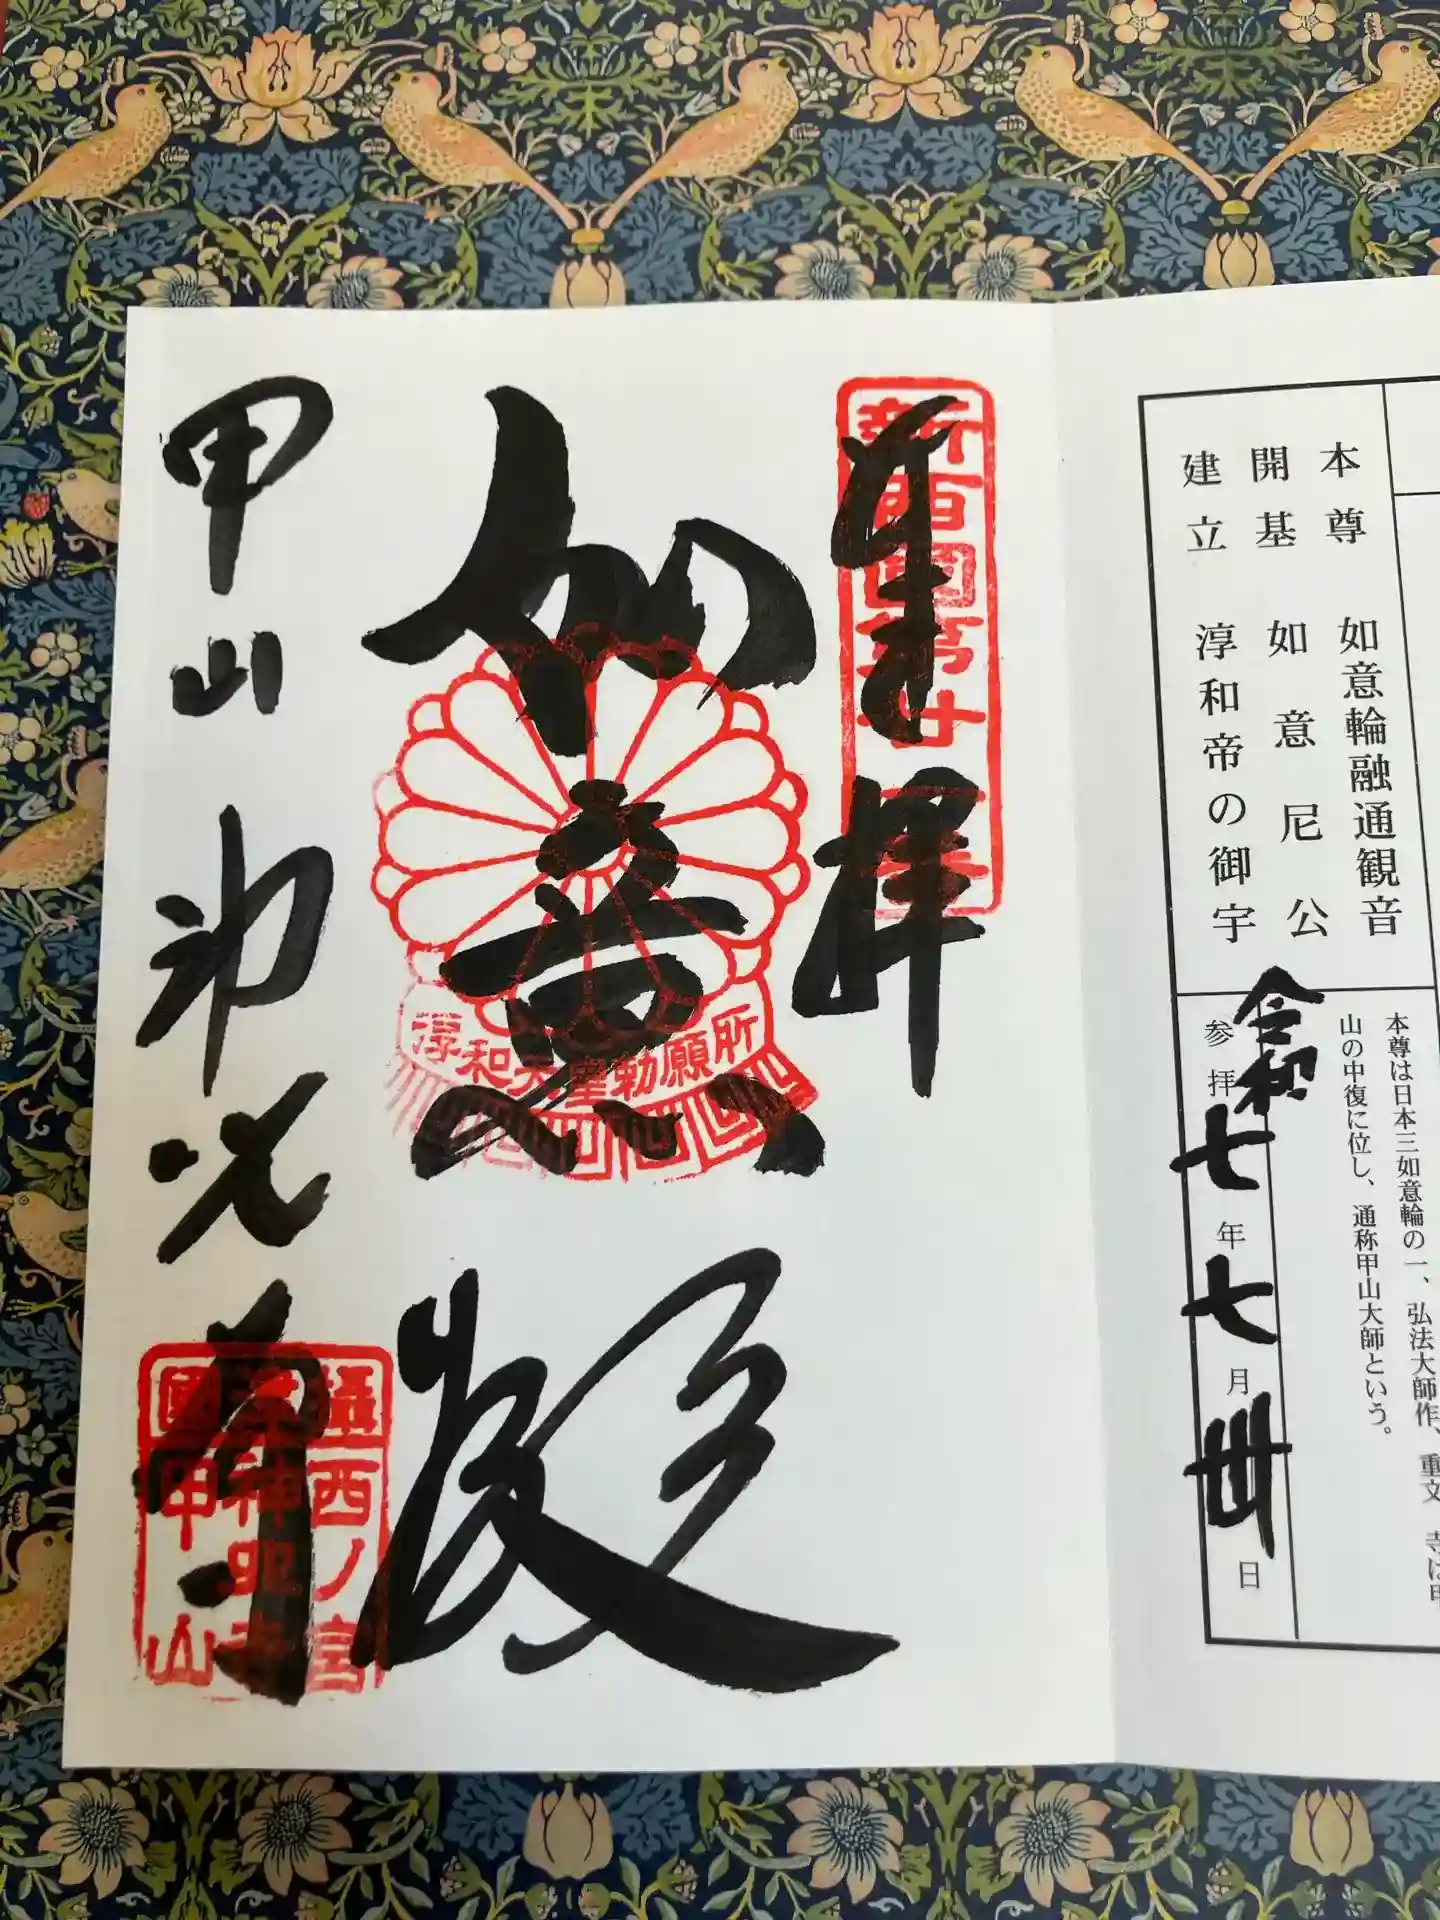 本尊 如意輪融通観音
開基 如意尼公
建立 淳和帝の御宇
本尊は日本三如意輪の一、弘法大師作、重文 寺は甲
山の中復に位し、通称甲山大師という。
令和
参拝 七年七月卅日
奉拝
新西國第廿一番
如意殿
淳和天皇勅願所
甲山神呪寺
攝西ノ宮
神呪寺
國甲山